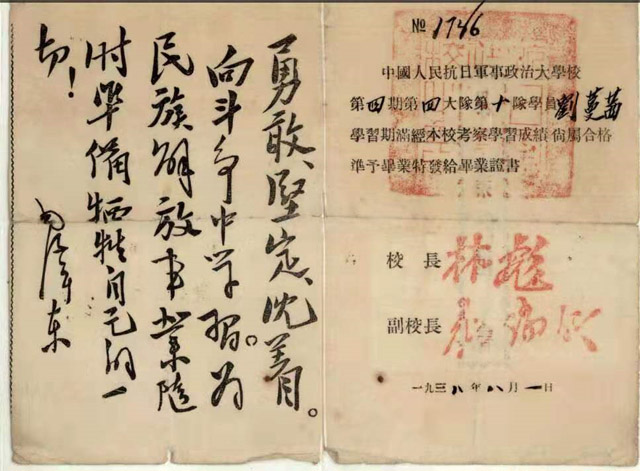 № 1746
中國人民抗日軍事政治大學校
第四期第四大隊第十隊學員劉蔓茜
學習期滿經本校考察學習成績尙屬合格
準予畢業特發給畢業證書
校長 林彪
副校長
一九三八年八月一日
勇敢、堅定、沈着。
向斗争中学習。为
民族解放事業随
时準備牺牲自己的一
切！
毛泽东